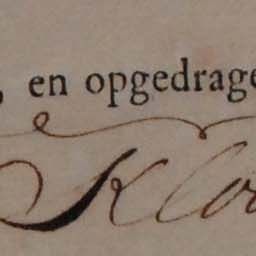 , en opgedrage
Kloo